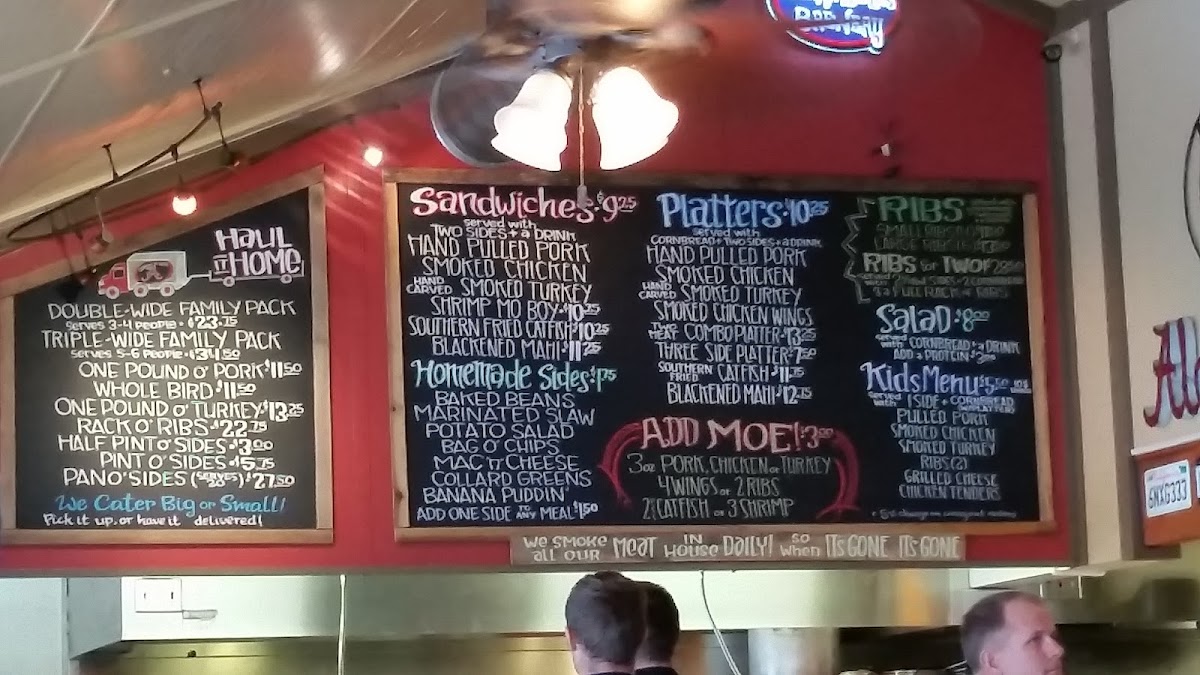 BREWERY
HAUL
IT HOME
DOUBLE-WIDE FAMILY PACK
SERVES 3-4 PEOPLE - $23.75
TRIPLE-WIDE FAMILY PACK
SERVES 5-6 PEOPLE - $34.50
ONE POUND O' PORK $11.50
WHOLE BIRD $11.50
ONE POUND O' TURKEY $13.25
RACK O' RIBS $22.75
HALF PINT O' SIDES $3.00
PINT O' SIDES $5.75
PAN O' SIDES $27.50
We Cater Big or Small!
Pick it up, or have it delivered!
Sandwiches $9.25
served with
TWO SIDES + a DRINK
HAND PULLED PORK
SMOKED CHICKEN
HAND CARVED SMOKED TURKEY
SHRIMP MO BOY $10.25
SOUTHERN FRIED CATFISH $10.25
BLACKENED MAHI $11.25
Homemade Sides $1.75
BAKED BEANS
MARINATED SLAW
POTATO SALAD
BAG O' CHIPS
MAC 'n' CHEESE
COLLARD GREENS
BANANA PUDDIN'
ADD ONE SIDE TO ANY MEAL $1.50
Platters $10.25
served with
CORNBREAD + TWO SIDES + a DRINK
HAND PULLED PORK
SMOKED CHICKEN
HAND CARVED SMOKED TURKEY
SMOKED CHICKEN WINGS
TWO MEAT COMBO PLATTER $13.25
THREE SIDE PLATTER $7.50
SOUTHERN FRIED CATFISH $11.75
BLACKENED MAHI $12.75
ADD MOE! $3.00
3 oz PORK, CHICKEN or TURKEY
4 WINGS or 2 RIBS
CATFISH or 3 SHRIMP
RIBS
SMALL RIBS
LARGE RIBS
RIBS for TWO!
FULL RACK of RIBS
Salad $8.00
served with CORNBREAD + a DRINK
ADD a PROTEIN $3.00
Kids Menu $5.50
served with 1 SIDE + CORNBREAD
PULLED PORK
SMOKED CHICKEN
SMOKED TURKEY
RIBS (2)
GRILLED CHEESE
CHICKEN TENDERS
WE SMOKE ALL OUR MEAT IN HOUSE DAILY! SO WHEN ITS GONE, ITS GONE